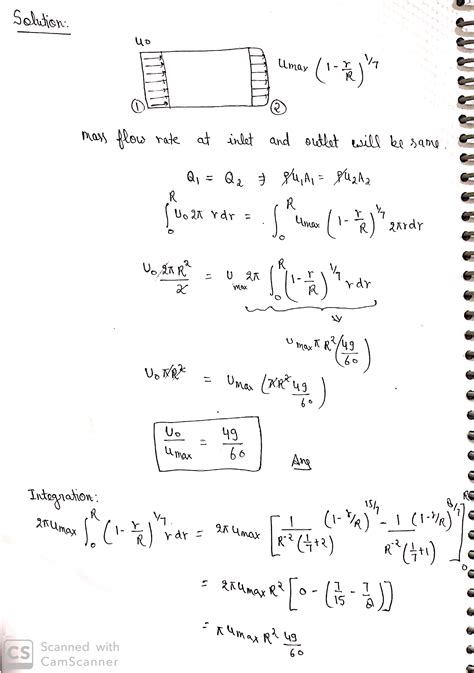 Solution:
u0
umax (1 - r/R)^1/7
1 2
mass flow rate at inlet and outlet will be same.
Q1 = Q2 ⇒ ρu1A1 = ρu2A2
∫0^R u0 2π r dr = ∫0^R umax (1 - r/R)^1/7 2πr dr
u0 2π R²/2 = umax 2π ∫0^R (1 - r/R)^1/7 r dr
umax π R² (49/60)
u0 πR² = umax (πR² 49/60)
u0/umax = 49/60
Ans
Integration:
2π umax ∫0^R (1 - r/R)^1/7 r dr = 2π umax [1/(R^-2 (1/7 + 2)) (1 - r/R)^15/7 - 1/(R^-2 (1/7 + 1)) (1 - r/R)^8/7]0
= 2π umax R² [0 - (7/15 - 7/8)]
= π umax R² 49/60
CS Scanned with
CamScanner